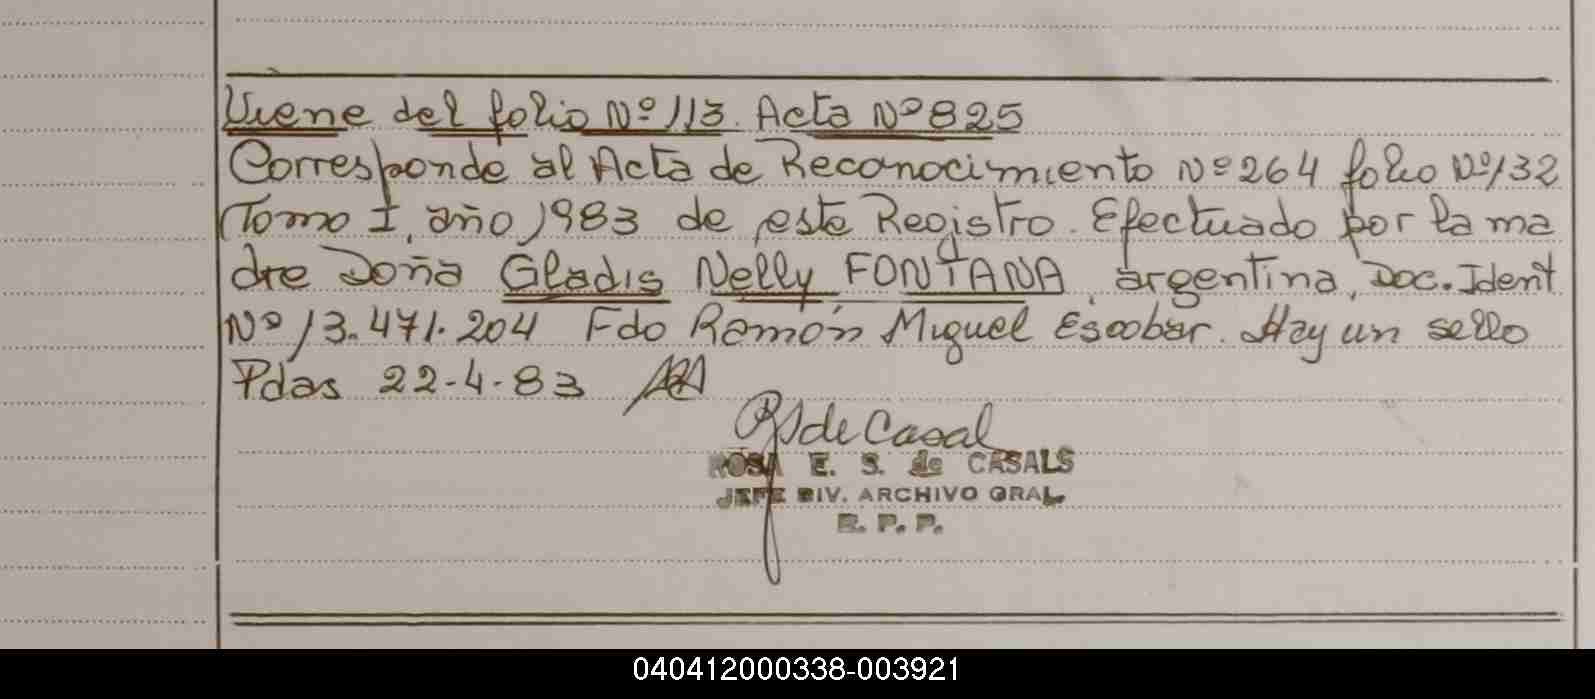 Viene del folio Nº 113. Acta Nº 825
Corresponde al Acta de Reconocimiento Nº 264 folio Nº 132
Tomo I, año 1983 de este Registro. Efectuado por la ma
dre Doña Gladis Nelly FONTANA, argentina, Doc. Ident
Nº 13.471.204 Fdo Ramón Miguel Escobar. Hay un sello
Pdas 22-4-83
de Casal
ROSA E. S. de CASALS
JEFE DIV. ARCHIVO GRAL.
R. P. P.
040412000338-003921